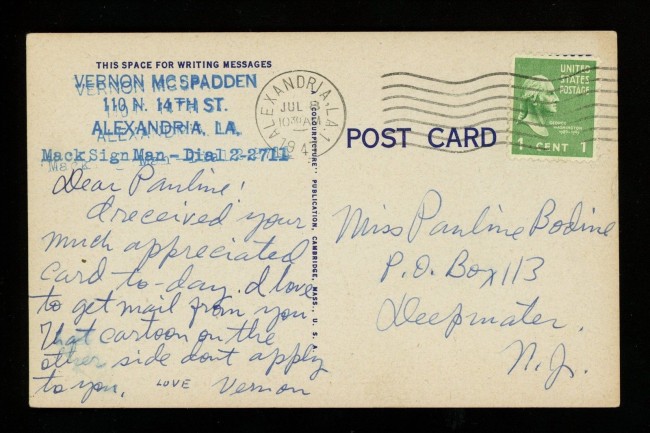 THIS SPACE FOR WRITING MESSAGES
VERNON MCSPADDEN
110 N. 14TH ST.
ALEXANDRIA, LA.
Mack Sign Man - Dial 2-2711
Dear Pauline!
I received your
much appreciated
card to-day. I love
to get mail from you.
That cartoon on the
other side dont apply
to you.
LOVE Vernon
"COLOURPICTURE" PUBLICATION, CAMBRIDGE, MASS., U. S. A.
ALEXANDRIA, LA. 1
JUL
AM
194
POST CARD
UNITED
STATES
POSTAGE
GEORGE
WASHINGTON
1 CENT 1
Miss Pauline Bodine
P.O. Box 113
Deepwater,
N.J.